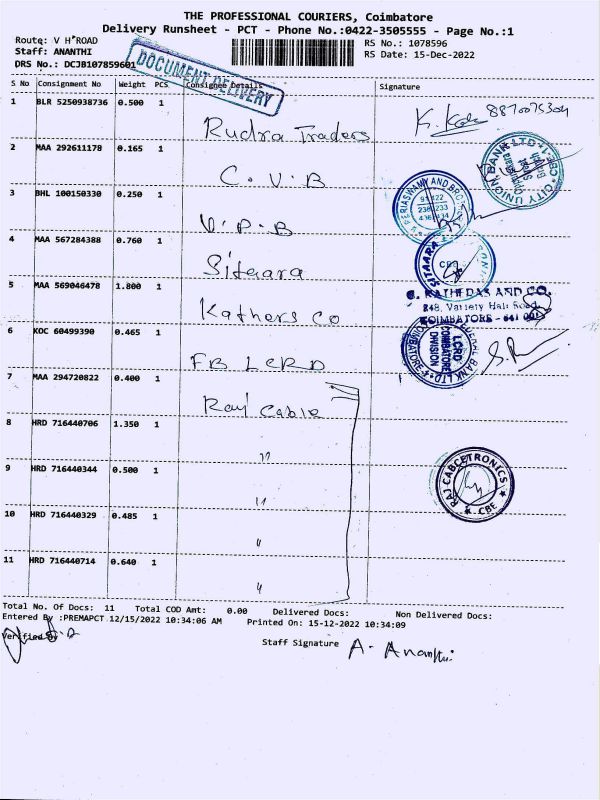 THE PROFESSIONAL COURIERS, Coimbatore
Delivery Runsheet - PCT - Phone No.:0422-3505555 - Page No.:1
Routq: V H ROAD
RS No.: 1078596
Staff: ANANTHI
RS Date: 15-Dec-2022
DRS No.: DCJB107859601
DOCUMENT DELIVERY
S No Consignment No Weight PCS Consignee Details Signature
1 BLR 5250938736 0.500 1 Rudra Traders 8870075304
2 MAA 292611178 0.165 1 C.V.B CITY UNION BANK LTD
3 BHL 100150330 0.250 1 V.P.B PERIASWAMY AND BRO
4 MAA 567284388 0.760 1 Sitaara SITAARA
5 MAA 569046478 1.800 1 Kathers Co
KATHEDAS AND CO.
248, Variety Hall Road
COIMBATORE - 641 001
6 KOC 60499390 0.465 1 FB LCRD
LCRD
COIMBATORE
DIVISION
7 MAA 294720822 0.400 1 Raj Cable
8 HRD 716440706 1.350 1 "
9 HRD 716440344 0.500 1 " RAJ CABCETRONICS CBE
10 HRD 716440329 0.485 1 "
11 HRD 716440714 0.640 1 "
Total No. Of Docs: 11 Total COD Amt: 0.00 Delivered Docs: Non Delivered Docs:
Entered By :PREMAPCT 12/15/2022 10:34:06 AM Printed On: 15-12-2022 10:34:09
Verified By
Staff Signature A. Ananthi